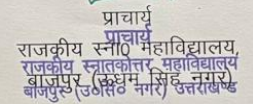 प्राचार्य
प्राचार्य
राजकीय स्ना0 महाविद्यालय,
राजकीय स्नातकोत्तर महाविद्यालय
बाजपुर (ऊधम सिंह नगर)
बाजपुर (उ०सि० नगर) उत्तराखण्ड